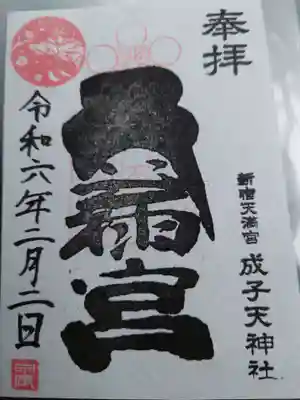 奉拝
新宿天満宮
成子天神社
宮
令和六年二月二日